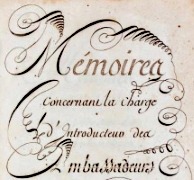 Mémoires
Concernant la Charge
d'Introducteur des
Ambassadeurs